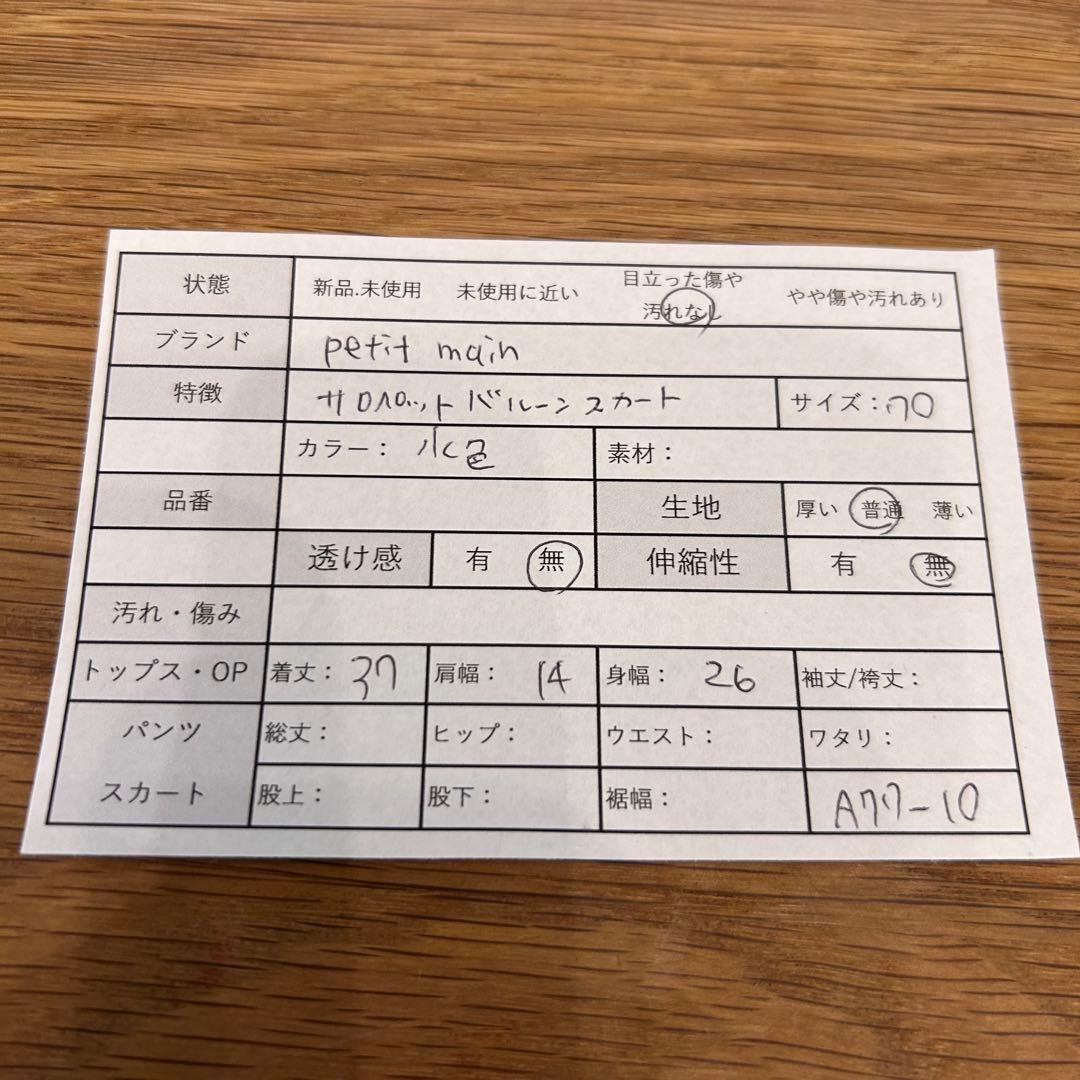 状態 新品.未使用 未使用に近い 目立った傷や汚れなし やや傷や汚れあり
ブランド petit main
特徴 サロペット バルーンスカート サイズ:70
カラー: 水色 素材:
品番 生地 厚い 普通 薄い
透け感 有 無 伸縮性 有 無
汚れ・傷み
トップス・OP 着丈: 37 肩幅: 14 身幅: 26 袖丈/袴丈:
パンツ 総丈: ヒップ: ウエスト: ワタリ:
スカート 股上: 股下: 裾幅: A77-10